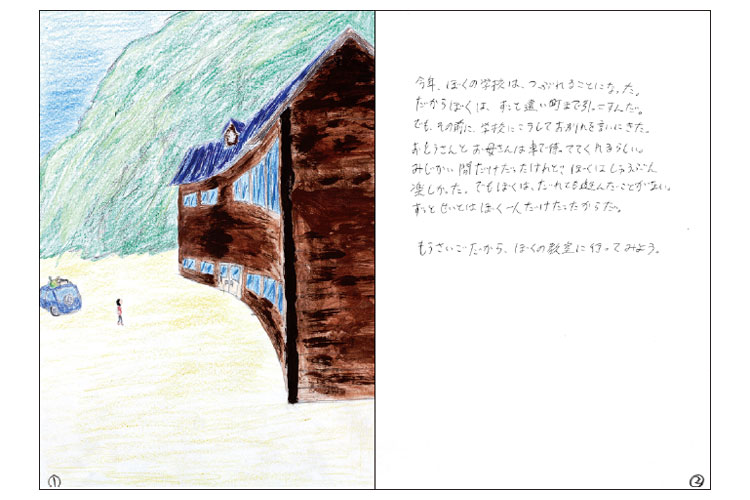 今年、ぼくの学校は、つぶれることになった。
だからぼくは、ずっと遠い町まで引っこすんだ。
でも、その前に、学校にこうしておわかれを言いにきた。
おとうさんと お母さんは車で待っててくれるらしい。
みじかい間だけだったけれど、ぼくはじゅうぶん
楽しかった。でもぼくは、だれとも遊んだことがない。
ずっと せいとはぼく一人だけだったからだ。
もうさいごだから、ぼくの教室に行ってみよう。
①
②